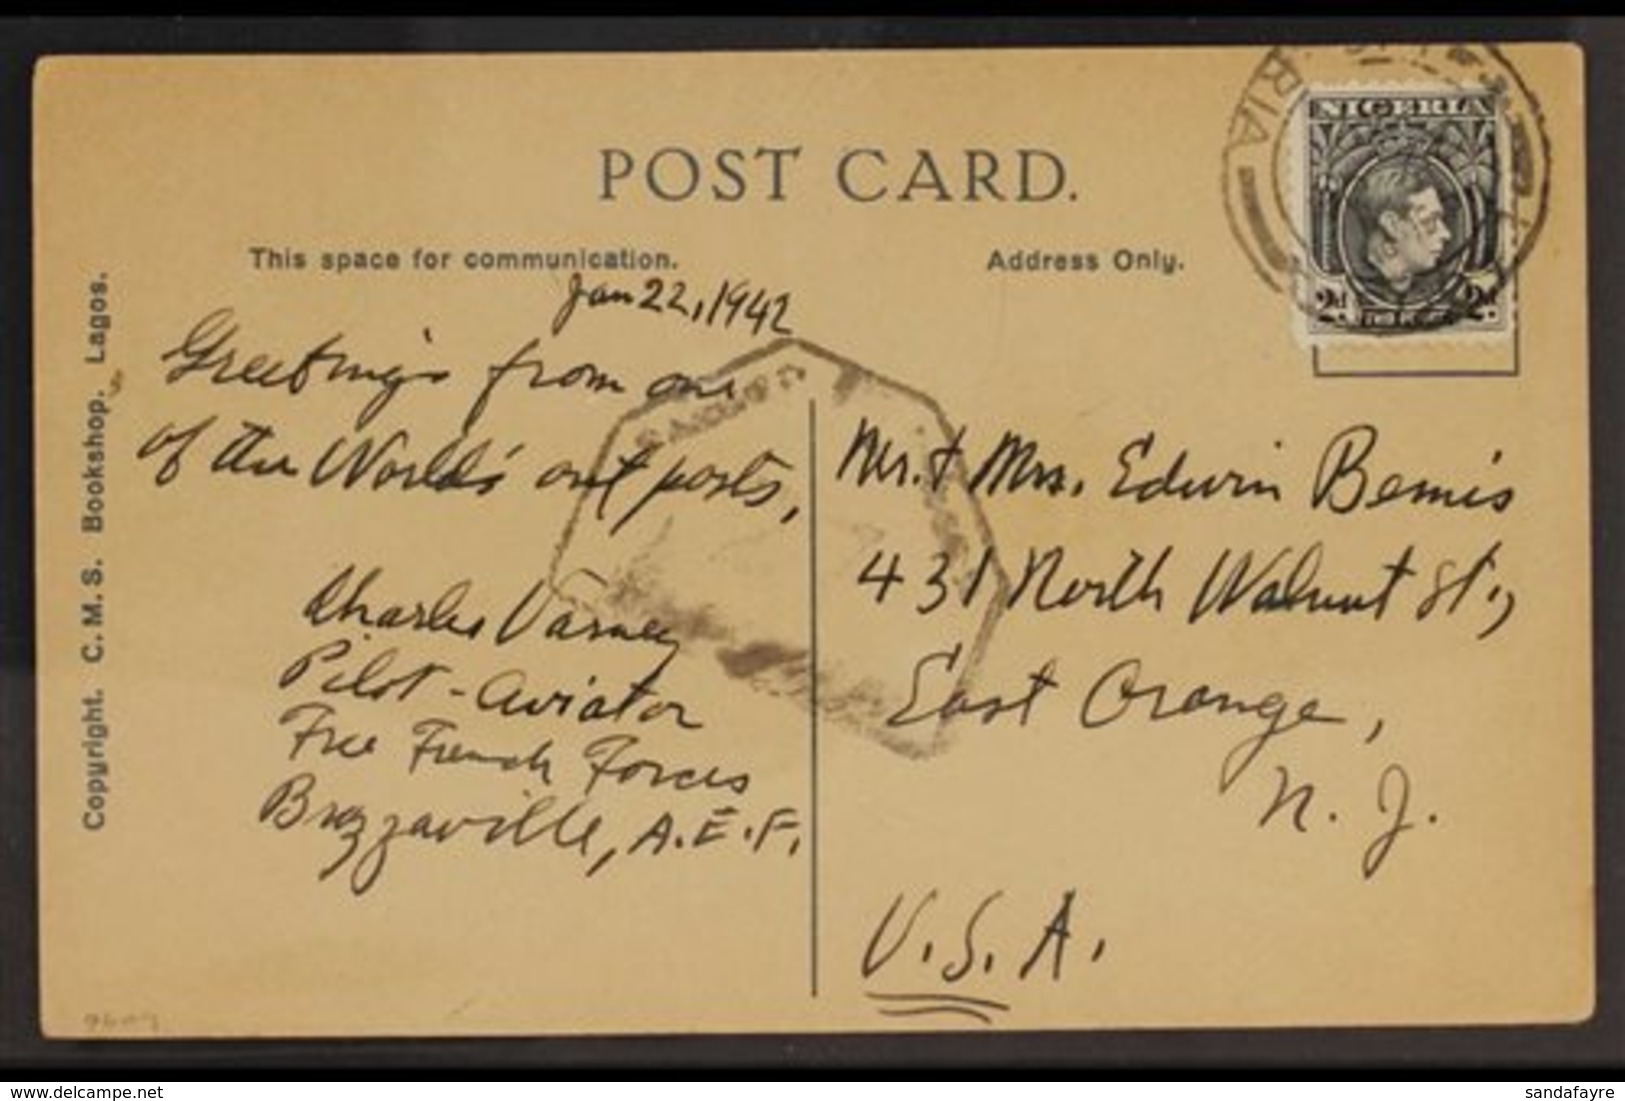 POST CARD.
This space for communication.
Address Only.
Copyright. C. M. S. Bookshop. Lagos.
NIGERIA
2d 2d
RIA
Jan 22, 1942
Greetings from one
of the World's out posts,
Charles Varney
Pilot-Aviator
Free French Forces
Brazzaville, A.E.F.
Mr. & Mrs. Edwin Bemis
431 North Walnut St.,
East Orange,
N. J.
U.S.A.
delcampe.net
sandafayre